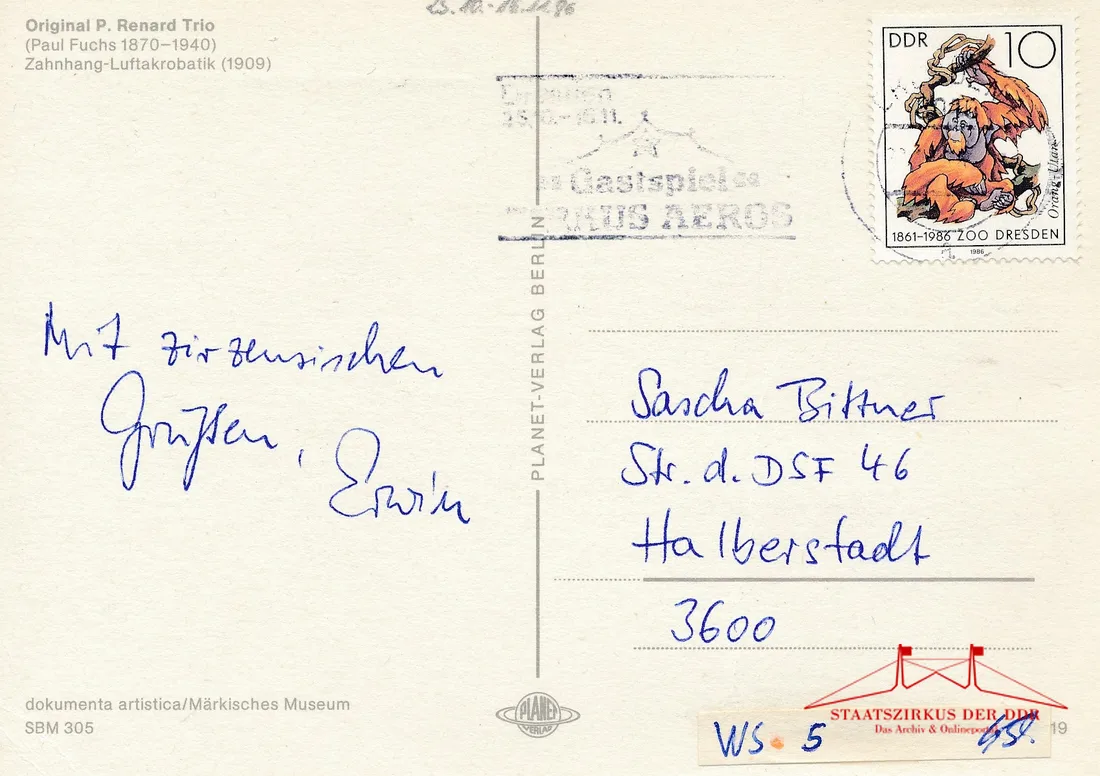 Original P. Renard Trio
(Paul Fuchs 1870–1940)
Zahnhang-Luftakrobatik (1909)
DDR 10
Orang-Utan
1861-1986 ZOO DRESDEN
1986
Gastspiel
ZIRKUS AEROS
PLANET-VERLAG BERLIN
Mit zirzensischen
Grüßen,
Erwin
Sascha Bittner
Str. d. DSF 46
Halberstadt
3600
dokumenta artistica/Märkisches Museum
SBM 305
PLANET
VERLAG
STAATSZIRKUS DER DDR
Das Archiv & Onlineportal
WS 5
19